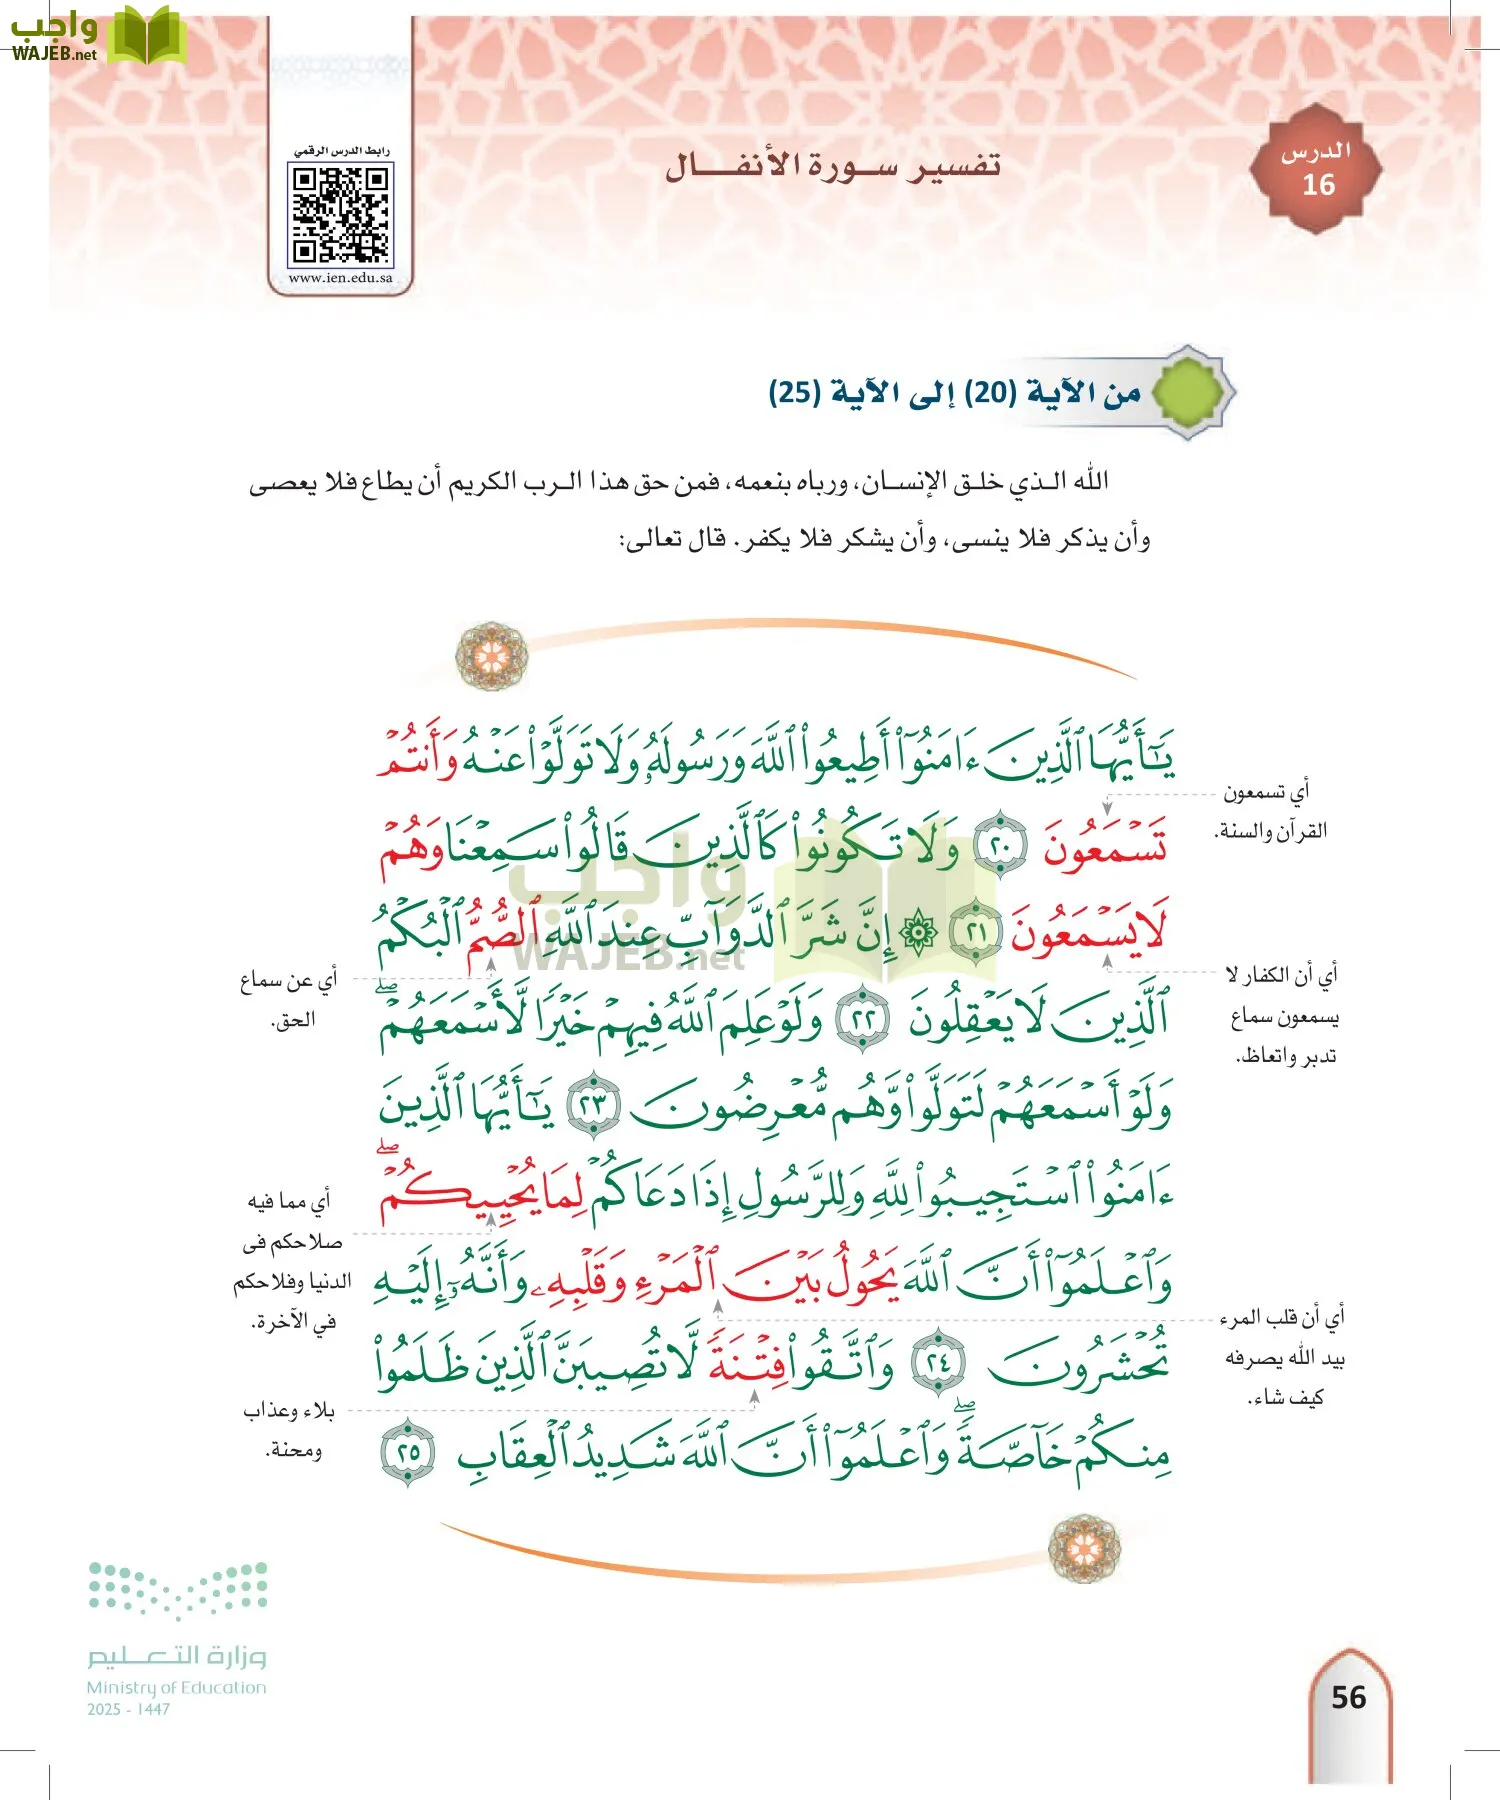 واجب
WAJEB.net
رابط الدرس الرقمي
www.ien.edu.sa
الدرس
16
تفسير سورة الأنفال
من الآية (20) إلى الآية (25)
الله الذي خلق الإنسان، ورباه بنعمه، فمن حق هذا الرب الكريم أن يطاع فلا يعصى
وأن يذكر فلا ينسى، وأن يشكر فلا يكفر. قال تعالى:
يَٰٓأَيُّهَا ٱلَّذِينَ ءَامَنُوٓاْ أَطِيعُواْ ٱللَّهَ وَرَسُولَهُۥ وَلَا تَوَلَّوۡاْ عَنۡهُ وَأَنتُمۡ
تَسۡمَعُونَ ٢٠ وَلَا تَكُونُواْ كَٱلَّذِينَ قَالُواْ سَمِعۡنَا وَهُمۡ
لَا يَسۡمَعُونَ ٢١ ۞ إِنَّ شَرَّ ٱلدَّوَآبِّ عِندَ ٱللَّهِ ٱلصُّمُّ ٱلۡبُكۡمُ
ٱلَّذِينَ لَا يَعۡقِلُونَ ٢٢ وَلَوۡ عَلِمَ ٱللَّهُ فِيهِمۡ خَيۡرٗا لَّأَسۡمَعَهُمۡۖ
وَلَوۡ أَسۡمَعَهُمۡ لَتَوَلَّواْ وَّهُم مُّعۡرِضُونَ ٢٣ يَٰٓأَيُّهَا ٱلَّذِينَ
ءَامَنُواْ ٱسۡتَجِيبُواْ لِلَّهِ وَلِلرَّسُولِ إِذَا دَعَاكُمۡ لِمَا يُحۡيِيكُمۡۖ
وَٱعۡلَمُوٓاْ أَنَّ ٱللَّهَ يَحُولُ بَيۡنَ ٱلۡمَرۡءِ وَقَلۡبِهِۦ وَأَنَّهُۥٓ إِلَيۡهِ
تُحۡشَرُونَ ٢٤ وَٱتَّقُواْ فِتۡنَةٗ لَّا تُصِيبَنَّ ٱلَّذِينَ ظَلَمُواْ
مِنكُمۡ خَآصَّةٗۖ وَٱعۡلَمُوٓاْ أَنَّ ٱللَّهَ شَدِيدُ ٱلۡعِقَابِ ٢٥
أي تسمعون
القرآن والسنة.
أي أن الكفار لا
يسمعون سماع
تدبر واتعاظ.
أي عن سماع
الحق.
أي مما فيه
صلاحكم فى
الدنيا وفلاحكم
في الآخرة.
أي أن قلب المرء
بيد الله يصرفه
كيف شاء.
بلاء وعذاب
ومحنة.
واجب
WAJEB.net
وزارة التعليم
Ministry of Education
2025 - 1447
56